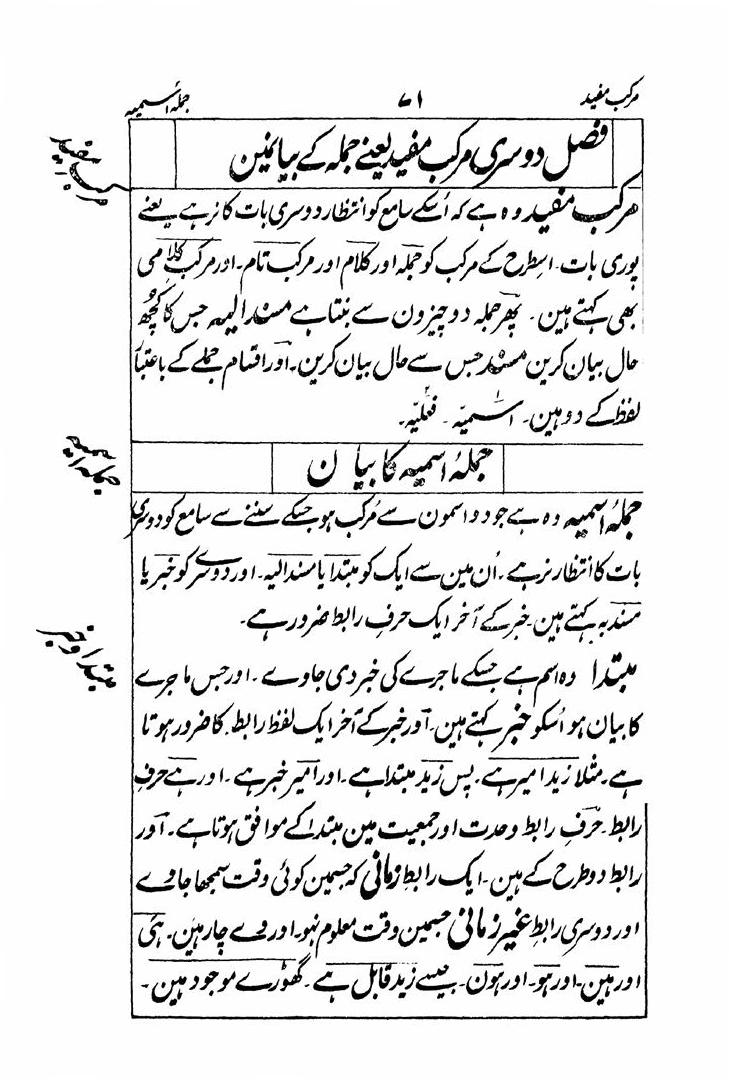 مرکب مفید ۷۱ جملۂ اسمیہ
فصل دوسری مرکب مفید یعنے جملہ کے بیانمین
مرکب مفید
مرکب مفید وہ ہے کہ اُسکے سامع کو انتظار دوسری بات کا نرہے یعنے
پوری بات۔ اسطرح کے مرکب کو جملہ اور کلام اور مرکب تام۔ اور مرکب کلامی
بھی کہتے ہین۔ پھر جملہ دو چیزون سے بنتا ہے مسند الیہ جس کا کُچھ
حال بیان کرین مسند جس سے حال بیان کرین۔ اور اقسام جملے کے باعتبار
لفظ کے دو ہین۔ اسمیّہ۔ فعلیّہ۔
جملۂ اسمیہ کا بیان
جملہ اسمیہ
جملۂ اسمیہ وہ ہے جو دو اسمون سے مُرکب ہو جسکے سننے سے سامع کو دوسری
بات کا انتظار نرہے۔ اُن مین سے ایک کو مبتدا یا مسند الیہ۔ اور دوسرے کو خبر یا
مسند بہ کہتے ہین۔ خبر کے آخر ایک حرفِ رابط ضرور ہے۔
مبتدا و خبر
مبتدا وہ اسم ہے جسکے ماجرے کی خبر دی جاوے۔ اور جس ماجرے
کا بیان ہو اُسکو خبر کہتے ہین۔ اور خبر کے آخر ایک لفظ رابط کا ضرور ہوتا
ہے۔ مثلا زید امیر ہے۔ پس زید مبتدا ہے۔ اور امیر خبر ہے۔ اور ہے حرفِ
رابط۔ حرفِ رابط وحدت اور جمعیت مین مبتدا کے موافق ہوتا ہے۔ اور
رابط دو طرح کے ہین۔ ایک رابطِ زمانی کہ جسمین کوئی وقت سمجھا جاوے
اور دوسری رابطِ غیر زمانی جسمین وقت معلوم نہو۔ اور وے چار ہین۔ ہی
اور ہین۔ اور ہو۔ اور ہون۔ جیسے زید قابل ہے۔ گھوڑے موجود ہین۔